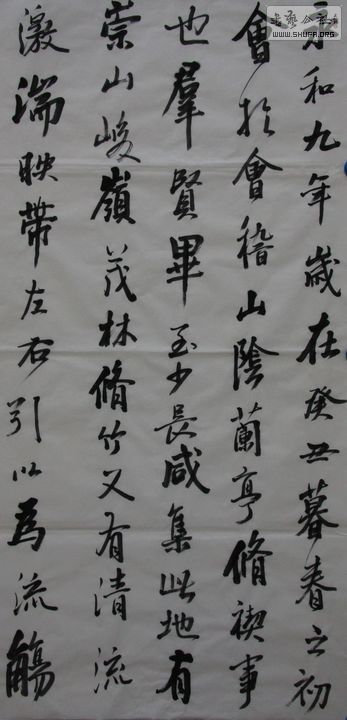 永和九年歲在癸丑暮春之初
會於會稽山陰蘭亭脩禊事
也羣賢畢至少長咸集此地有
崇山峻嶺茂林脩竹又有清流
激湍映帶左右引以為流觴
書藝公社
WWW.SHUFA.ORG